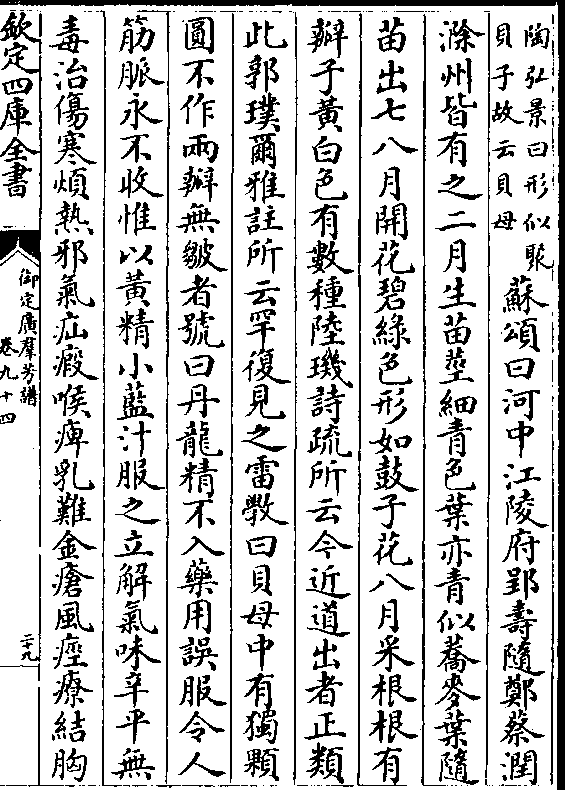 陶弘景曰形似聚
貝子故云貝母
蘇頌曰河中江陵府郢壽隨鄭蔡潤
滁州皆有之二月生苗莖細青色葉亦青似蕎麥葉隨
苗出七八月開花碧綠色形如鼓子花八月采根根有
瓣子黃白色有數種陸璣詩疏所云今近道出者正類
此郭璞爾雅註所云罕復見之雷斆曰貝母中有獨顆
圓不作兩瓣無皺者號曰丹龍精不入藥用誤服令人
筋脈永不收惟以黃精小藍汁服之立解氣味辛平無
毒治傷寒煩熱邪氣疝瘕喉痺乳難金瘡風痙療結胸
欽定四庫全書
御定廣羣芳譜
卷九十四
二十九